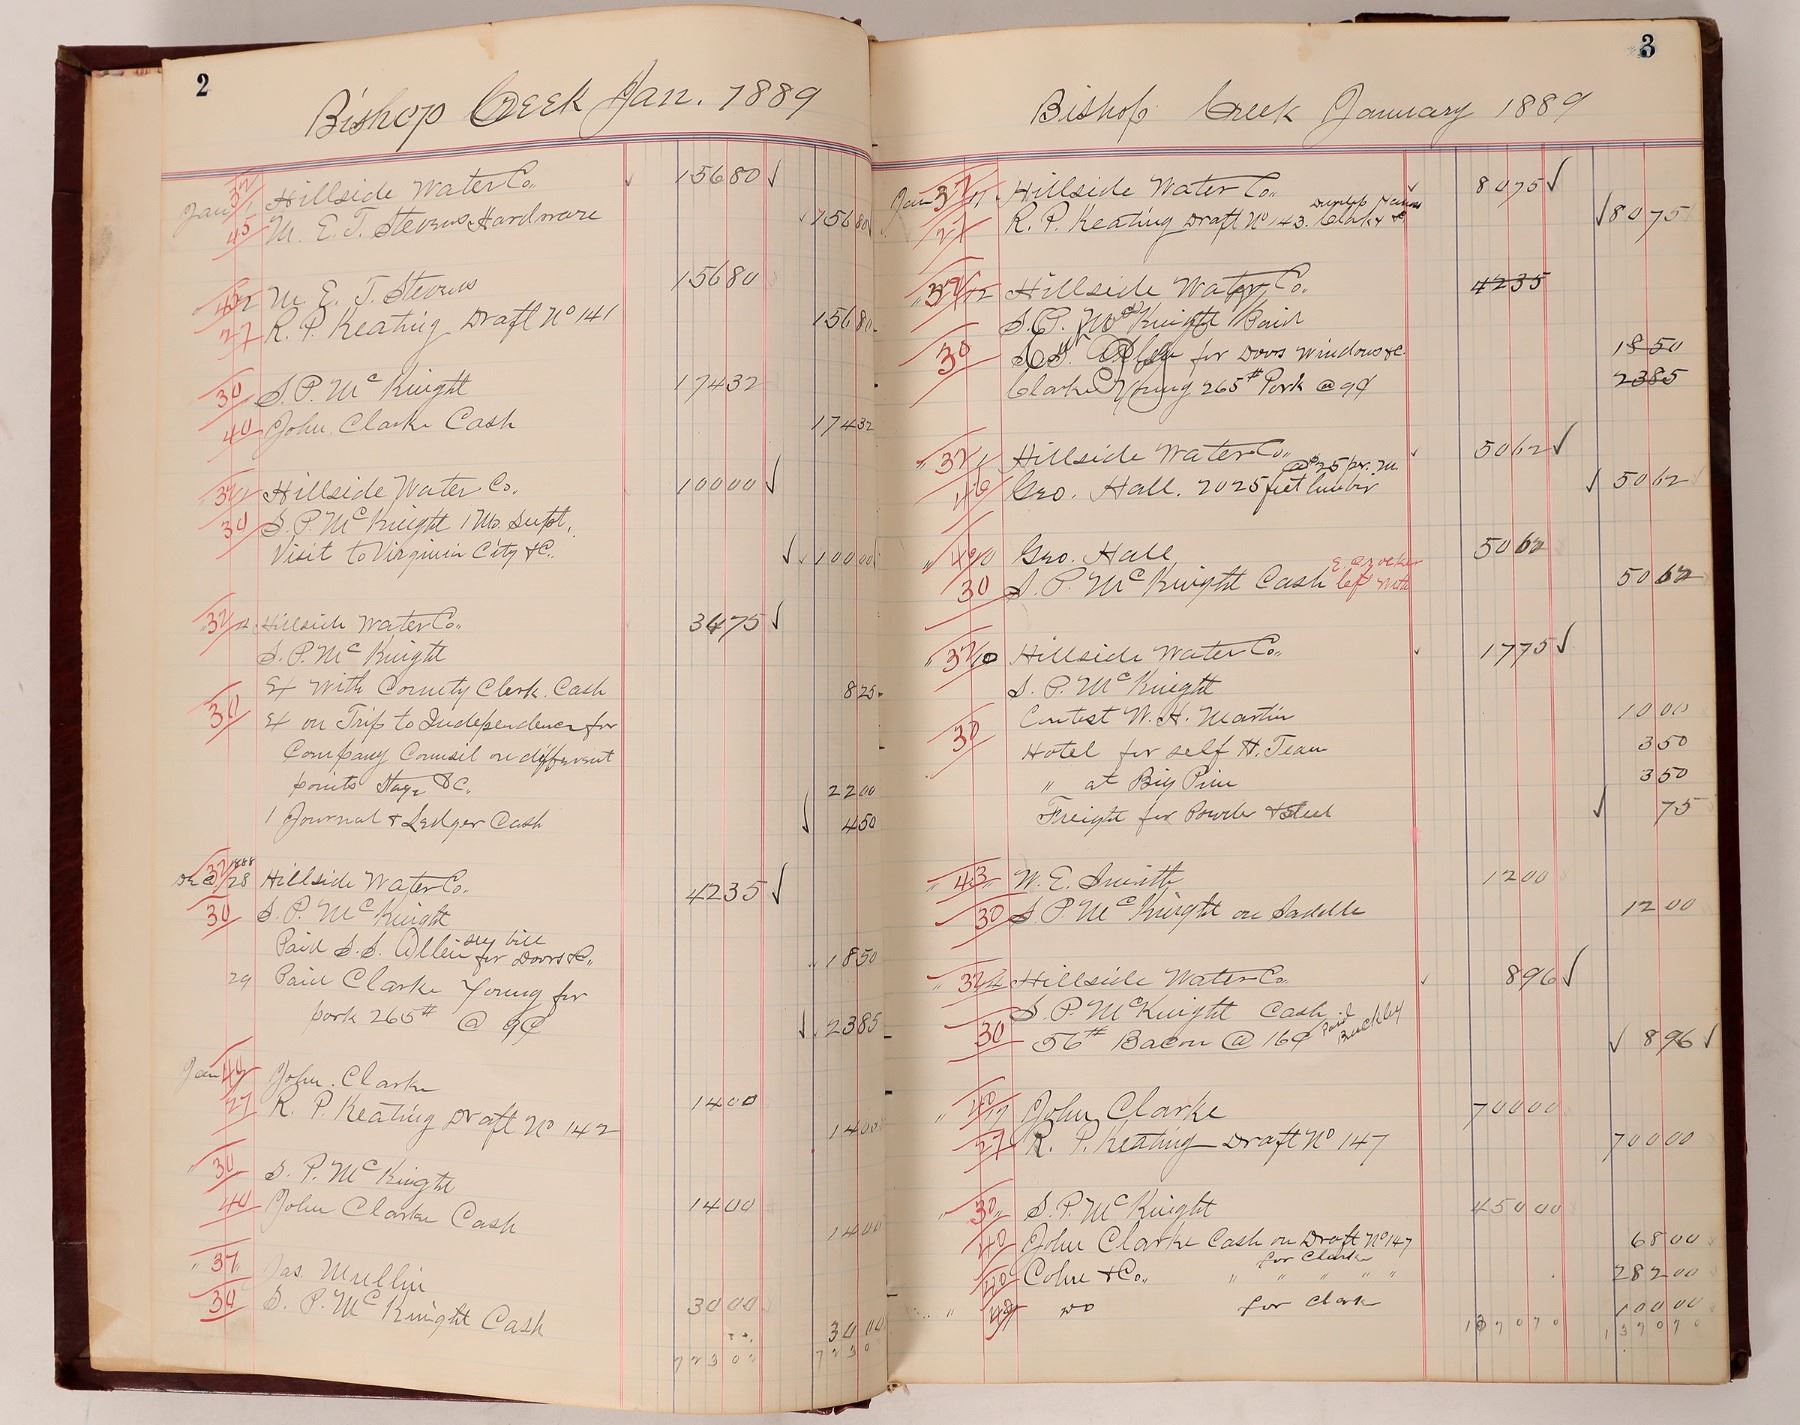 2
Bishop Creek Jan. 1889
Jan 32/1 Hillside Water Co. 156 80 ✓
45 M. E. T. Stevens Hardware 156 80
45/2 M. E. T. Stevens 156 80
27 R. P. Keating Draft No 141 156 80
30 S. P. McKnight 174 32
40 John Clarke Cash 174 32
32/2 Hillside Water Co. 100 00 ✓
30 S. P. McKnight 1 Mo. Supt.
Visit to Virginia City &c. ✓ 100 00
32/4 Hillside Water Co. 34 75 ✓
S. P. McKnight
Ex with County Clerk. Cash 8 25
30 Ex on Trip to Independence for
Company Counsil on different
points Stage &c. 22 00
1 Journal & Ledger Cash ✓ 4 50
1888
Dec 32/28 Hillside Water Co. 42 35 ✓
30 S. P. McKnight
Paid S. S. Allen see bill for Doors &c. 18 50
29 Paid Clarke Young for
pork 265# @ 9¢ ✓ 23 85
Jan 40 John Clarke 14 00
27 R. P. Keating Draft No 142 14 00
" 30 S. P. McKnight 14 00
40 John Clarke Cash 14 00
" 37 " Jas. Mullin 30 00
30 S. P. McKnight Cash 30 00
3
Bishop Creek January 1889
Jan 32 Hillside Water Co. 80 75 ✓
27 R. P. Keating Draft No 143. Clark & ✓ 80 75
" 32/12 Hillside Water Co. 42 35
S. P. McKnight Paid
30 S. S. Allen for Doors Windows &c. 18 50
Clarke Young 265# Pork @ 9¢ 23 85
" 32 Hillside Water Co. 50 62 ✓
46 Geo. Hall. 2025 feet lumber @ $25 per. M. ✓ 50 62
" 46/10 Geo. Hall 50 62
30 S. P. McKnight Cash left with 50 62
" 32/10 Hillside Water Co. 17 75 ✓
S. P. McKnight
Contest W. H. Martin 10 00
30 Hotel for self H. Team 3 50
" at Big Pine 3 50
Freight for Powder & Steel ✓ 75
" 43 " W. E. Smith 12 00
30 S P McKnight on Saddle 12 00
" 32 Hillside Water Co. 8 96 ✓
S. P. McKnight Cash.
30 56# Bacon @ 16¢ Paid Buckley ✓ 8 96 ✓
" 40/17 John Clarke 700 00
27 R. P. Keating Draft No 147 700 00
" 30 " S. P. McKnight 450 00
40 John Clarke Cash on Draft No 147 68 00
40 Cohn & Co. " " for Clarke " " " 282 00
" 49 Do for Clark 100 00